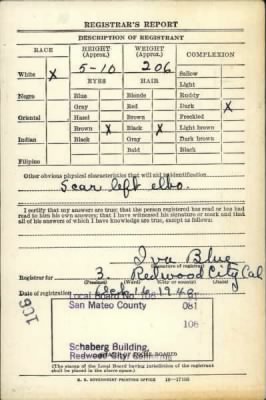 REGISTRAR'S REPORT
DESCRIPTION OF REGISTRANT
RACE HEIGHT (Approx.) WEIGHT (Approx.) COMPLEXION
White X 5-10 206 Sallow
EYES HAIR Light
Negro Blue Blonde Ruddy
Gray Red Dark X
Oriental Hazel Brown Freckled
Brown X Black X Light brown
Indian Black Gray Dark brown
Bald Black
Filipino
Other obvious physical characteristics that will aid in identification
Scar left elbo.
I certify that my answers are true; that the person registered has read or has had
read to him his own answers; that I have witnessed his signature or mark and that
all of his answers of which I have knowledge are true, except as follows:
Iva Blue
(Signature of registrar)
Registrar for 3 Redwood City Cal
(Precinct) (Ward) (City or county) (State)
Date of registration
Local Board No. 106
San Mateo County 081
106
Schaberg Building,
Redwood City,
(The stamp of the Local Board having jurisdiction of the registrant
shall be placed in the above space.)
U. S. GOVERNMENT PRINTING OFFICE
106